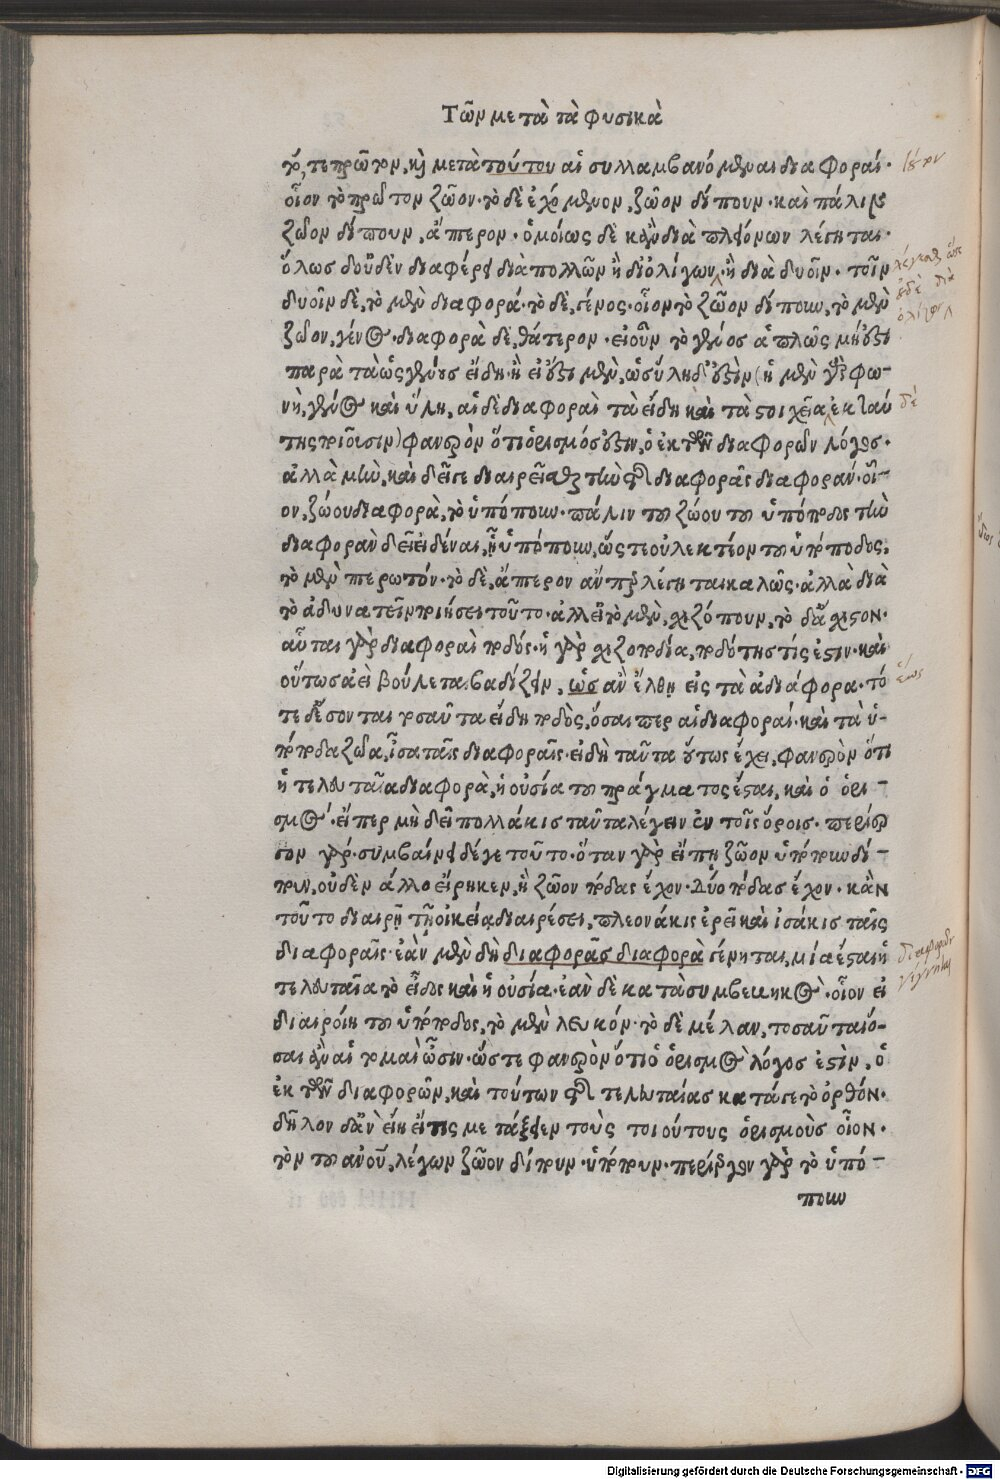 Τῶν μετὰ τὰ φυσικὰ
τό, τε πρῶτον, καὶ μετὰ τούτου αἱ συλλαμβανόμεναι διαφοραί.
οἷον τὸ πρῶτον ζῶον. τὸ δὲ ἐχόμενον, ζῶον δίπουν. καὶ πάλιν
ζῶον δίπουν, ἄπτερον. ὁμοίως δὲ κἂν διὰ πλειόνων λέγηται.
ὅλως δ' οὐδὲν διαφέρει διὰ πολλῶν ἢ δι' ὀλίγων, ἢ διὰ δυοῖν. τοῖν
δυοῖν δὲ, τὸ μὲν διαφορά. τὸ δὲ, γένος. οἷον τὸ ζῶον δίπουν, τὸ μὲν
ζῶον, γένος. διαφορὰ δὲ, θάτερον. εἰ οὖν τὸ γένος ἁπλῶς μή ἐστι
παρὰ τὰ ὡς γένους εἴδη. ἢ εἰ ἔστι μὲν, ὡς ὕλη δ' ἐστὶν (ἡ μὲν γὰρ φω-
νὴ, γένος καὶ ὕλη, αἱ δὲ διαφοραὶ τὰ εἴδη καὶ τὰ στοιχεῖα ἐκ ταύ
της ποιοῦσιν) φανερὸν ὅτι ὁρισμός ἐστιν, ὁ ἐκ τῶν διαφορῶν λόγος.
ἀλλὰ μὴν, καὶ δεῖ γε διαιρεῖσθαι τὴν τῆς διαφορᾶς διαφοράν. οἷ-
ον, ζώου διαφορὰ, τὸ ὑπόπουν. πάλιν τοῦ ζώου τοῦ ὑπόποδος τὴν
διαφορὰν δεῖ εἰδέναι, ᾗ ὑπόπουν, ὥστε οὐ λεκτέον τοῦ ὑπόποδος,
τὸ μὲν πτερωτόν. τὸ δὲ, ἄπτερον ἄν περ λέγηται καλῶς. ἀλλὰ διὰ
τὸ ἀδυνατεῖν ποιήσει τοῦτο. ἀλλ' εἰ τὸ μὲν, σχιζόπουν, τὸ δ' ἄσχιστον.
αὗται γὰρ διαφοραὶ ποδός. ἡ γὰρ σχιζοποδία, ποδότης τίς ἐστιν. καὶ
οὕτως ἀεὶ βούλεται βαδίζειν, ὡς ἂν ἔλθῃ εἰς τὰ ἀδιάφορα. τό
τε δ' ἔσονται τοσαῦτα εἴδη ποδὸς, ὅσαι περ αἱ διαφοραί. καὶ τὰ ὑ-
πόποδα ζῶα, ἴσα ταῖς διαφοραῖς. εἰ δὴ ταῦτα οὕτως ἔχει, φανερὸν ὅτι
ἡ τελευταία διαφορὰ, ἡ οὐσία τοῦ πράγματος ἔσται, καὶ ὁ ὁρι-
σμός. εἴπερ μὴ δεῖ πολλάκις ταῦτα λέγειν ἐν τοῖς ὅροις. περίερ
γον γάρ. συμβαίνει δέ γε τοῦτο. ὅταν γὰρ εἴπῃ ζῶον ὑπόπουν δί-
πουν, οὐδὲν ἄλλο εἴρηκεν, ἢ ζῶον πόδας ἔχον. δύο πόδας ἔχον. κἂν
τοῦτο διαιρῇ τῇ οἰκείᾳ διαιρέσει, πλεονάκις ἐρεῖ καὶ ἰσάκις ταῖς
διαφοραῖς. ἐὰν μὲν δὴ διαφορᾶς διαφορὰ γένηται, μία ἔσται ἡ
τελευταῖα τὸ εἶδος καὶ ἡ οὐσία. ἐὰν δὲ κατὰ συμβεβηκὸς. οἷον εἰ
διαιροίη τοῦ ὑπόποδος, τὸ μὲν λευκόν. τὸ δὲ μέλαν, τοσαῦται ὅ-
σαι ἂν αἱ τομαὶ ὦσιν. ὥστε φανερὸν ὅτι ὁ ὁρισμὸς λόγος ἐστὶν, ὁ
ἐκ τῶν διαφορῶν, καὶ τούτων τῆς τελευταίας κατά γε τὸ ὀρθόν.
δῆλον δ' ἂν εἴη εἴ τις μετάξειεν τοὺς τοιούτους ὁρισμοὺς οἷον.
τὸν τοῦ ἀνου, λέγων ζῶον δίπουν. ὑπόπουν. περίεργον γὰρ τὸ ὑπό-
πουν
δέ
ἕως
Digitalisierung gefördert durch die Deutsche Forschungsgemeinschaft - DFG